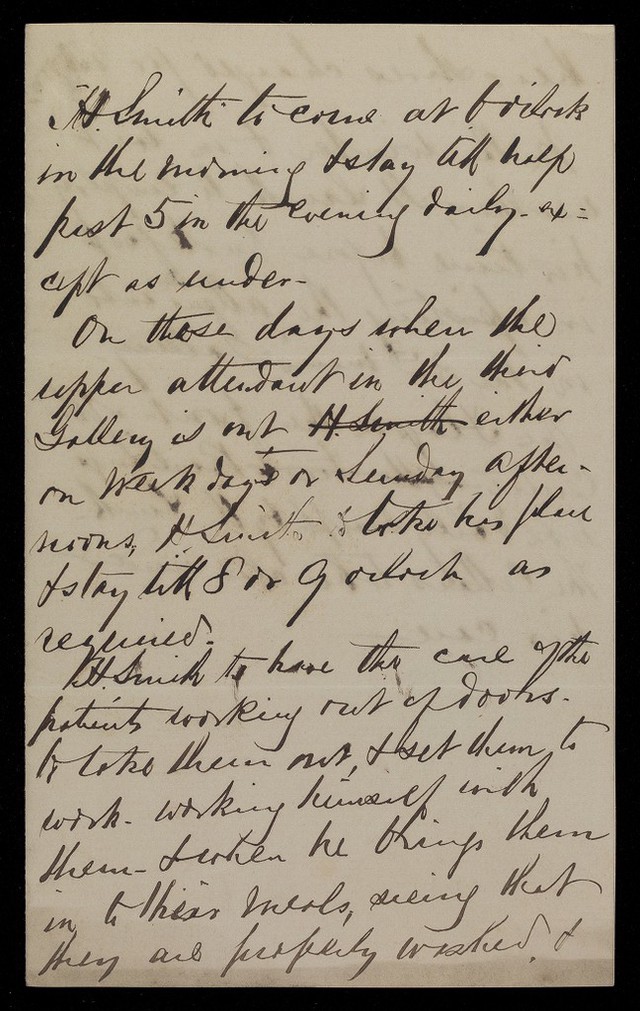 H. Smith to come at 6 oclock
in the morning & stay till half
past 5 in the evening daily - ex=
cept as under -
On those days when the
upper attendant in the third
Gallery is out H. Smith either
on Week days or Sunday after-
noons, H Smith to take his place
& stay till 8 or 9 oclock as
required.
H. Smith to have the care of the
patients working out of doors.
to take them out, & set them to
work - working himself with
them - & when he brings them
in to their meals, seeing that
they are properly washed, &